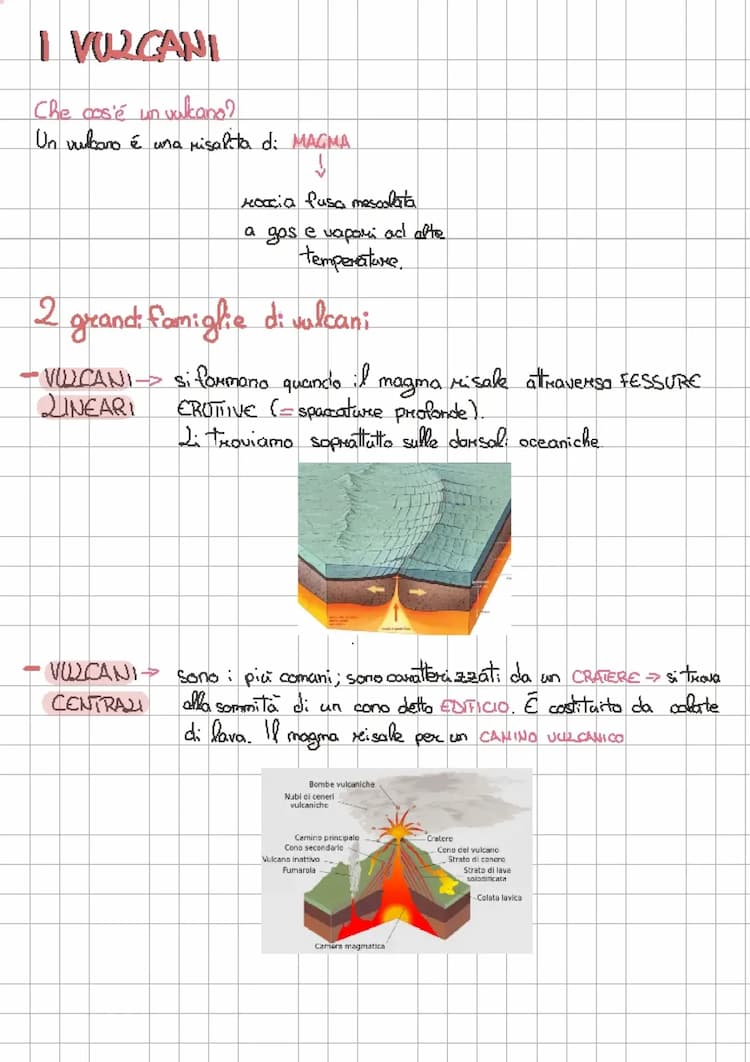 I VULCANI
Che cos'é un vulcano?
Un vulcano é una risalita di MAGMA
↓
roccia fusa mescolata
a gas e vapori ad alte
temperature.
2 grandi famiglie di vulcani
- VULCANI → si formano quando il magma risale attraverso FESSURE
LINEARI ERUTTIVE (= spaccature profonde).
Li troviamo soprattutto sulle dorsali oceaniche.
- VULCANI → sono i più comuni; sono caratterizzati da un CRATERE → si trova
CENTRALI alla sommità di un cono detto EDIFICIO. È costituito da colate
di lava. Il magma risale per un CAMINO VULCANICO
Bombe vulcaniche
Nubi di ceneri
vulcaniche
Camino principale
Cratere
Cono secondario
Cono del vulcano
Vulcano inattivo
Strato di cenere
Fumarola
Strato di lava
solidificata
Colata lavica
Camera magmatica